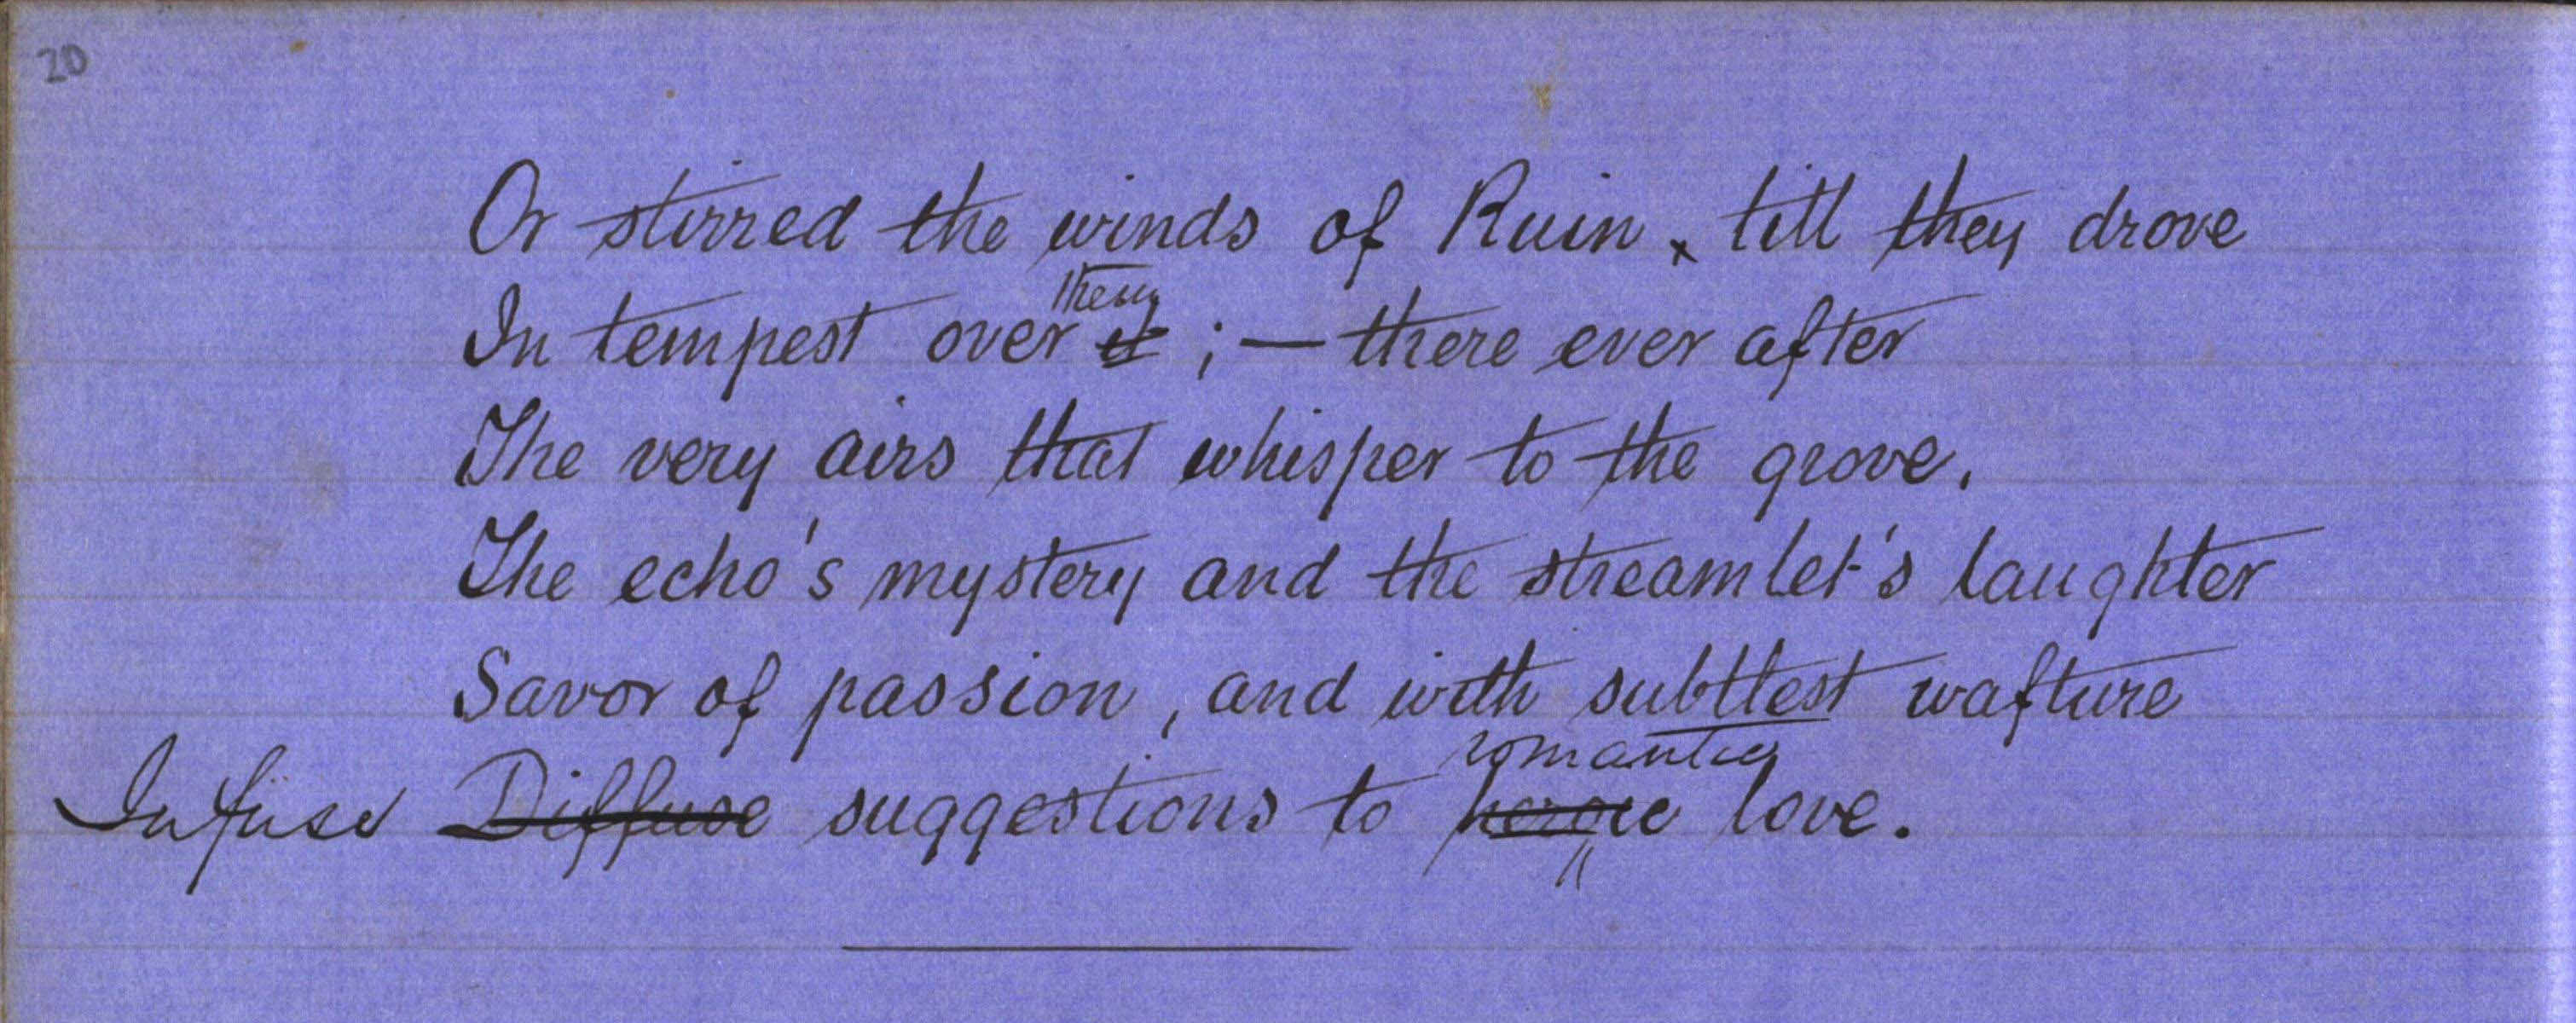 20
Or stirred the winds of Ruin, till they drove
them
In tempest over it ; — there ever after
The very airs that whisper to the grove,
The echo's mystery and the streamlet's laughter
Savor of passion, and with subtlest wafture
romantic
Infuse Diffuse suggestions to heroic love.